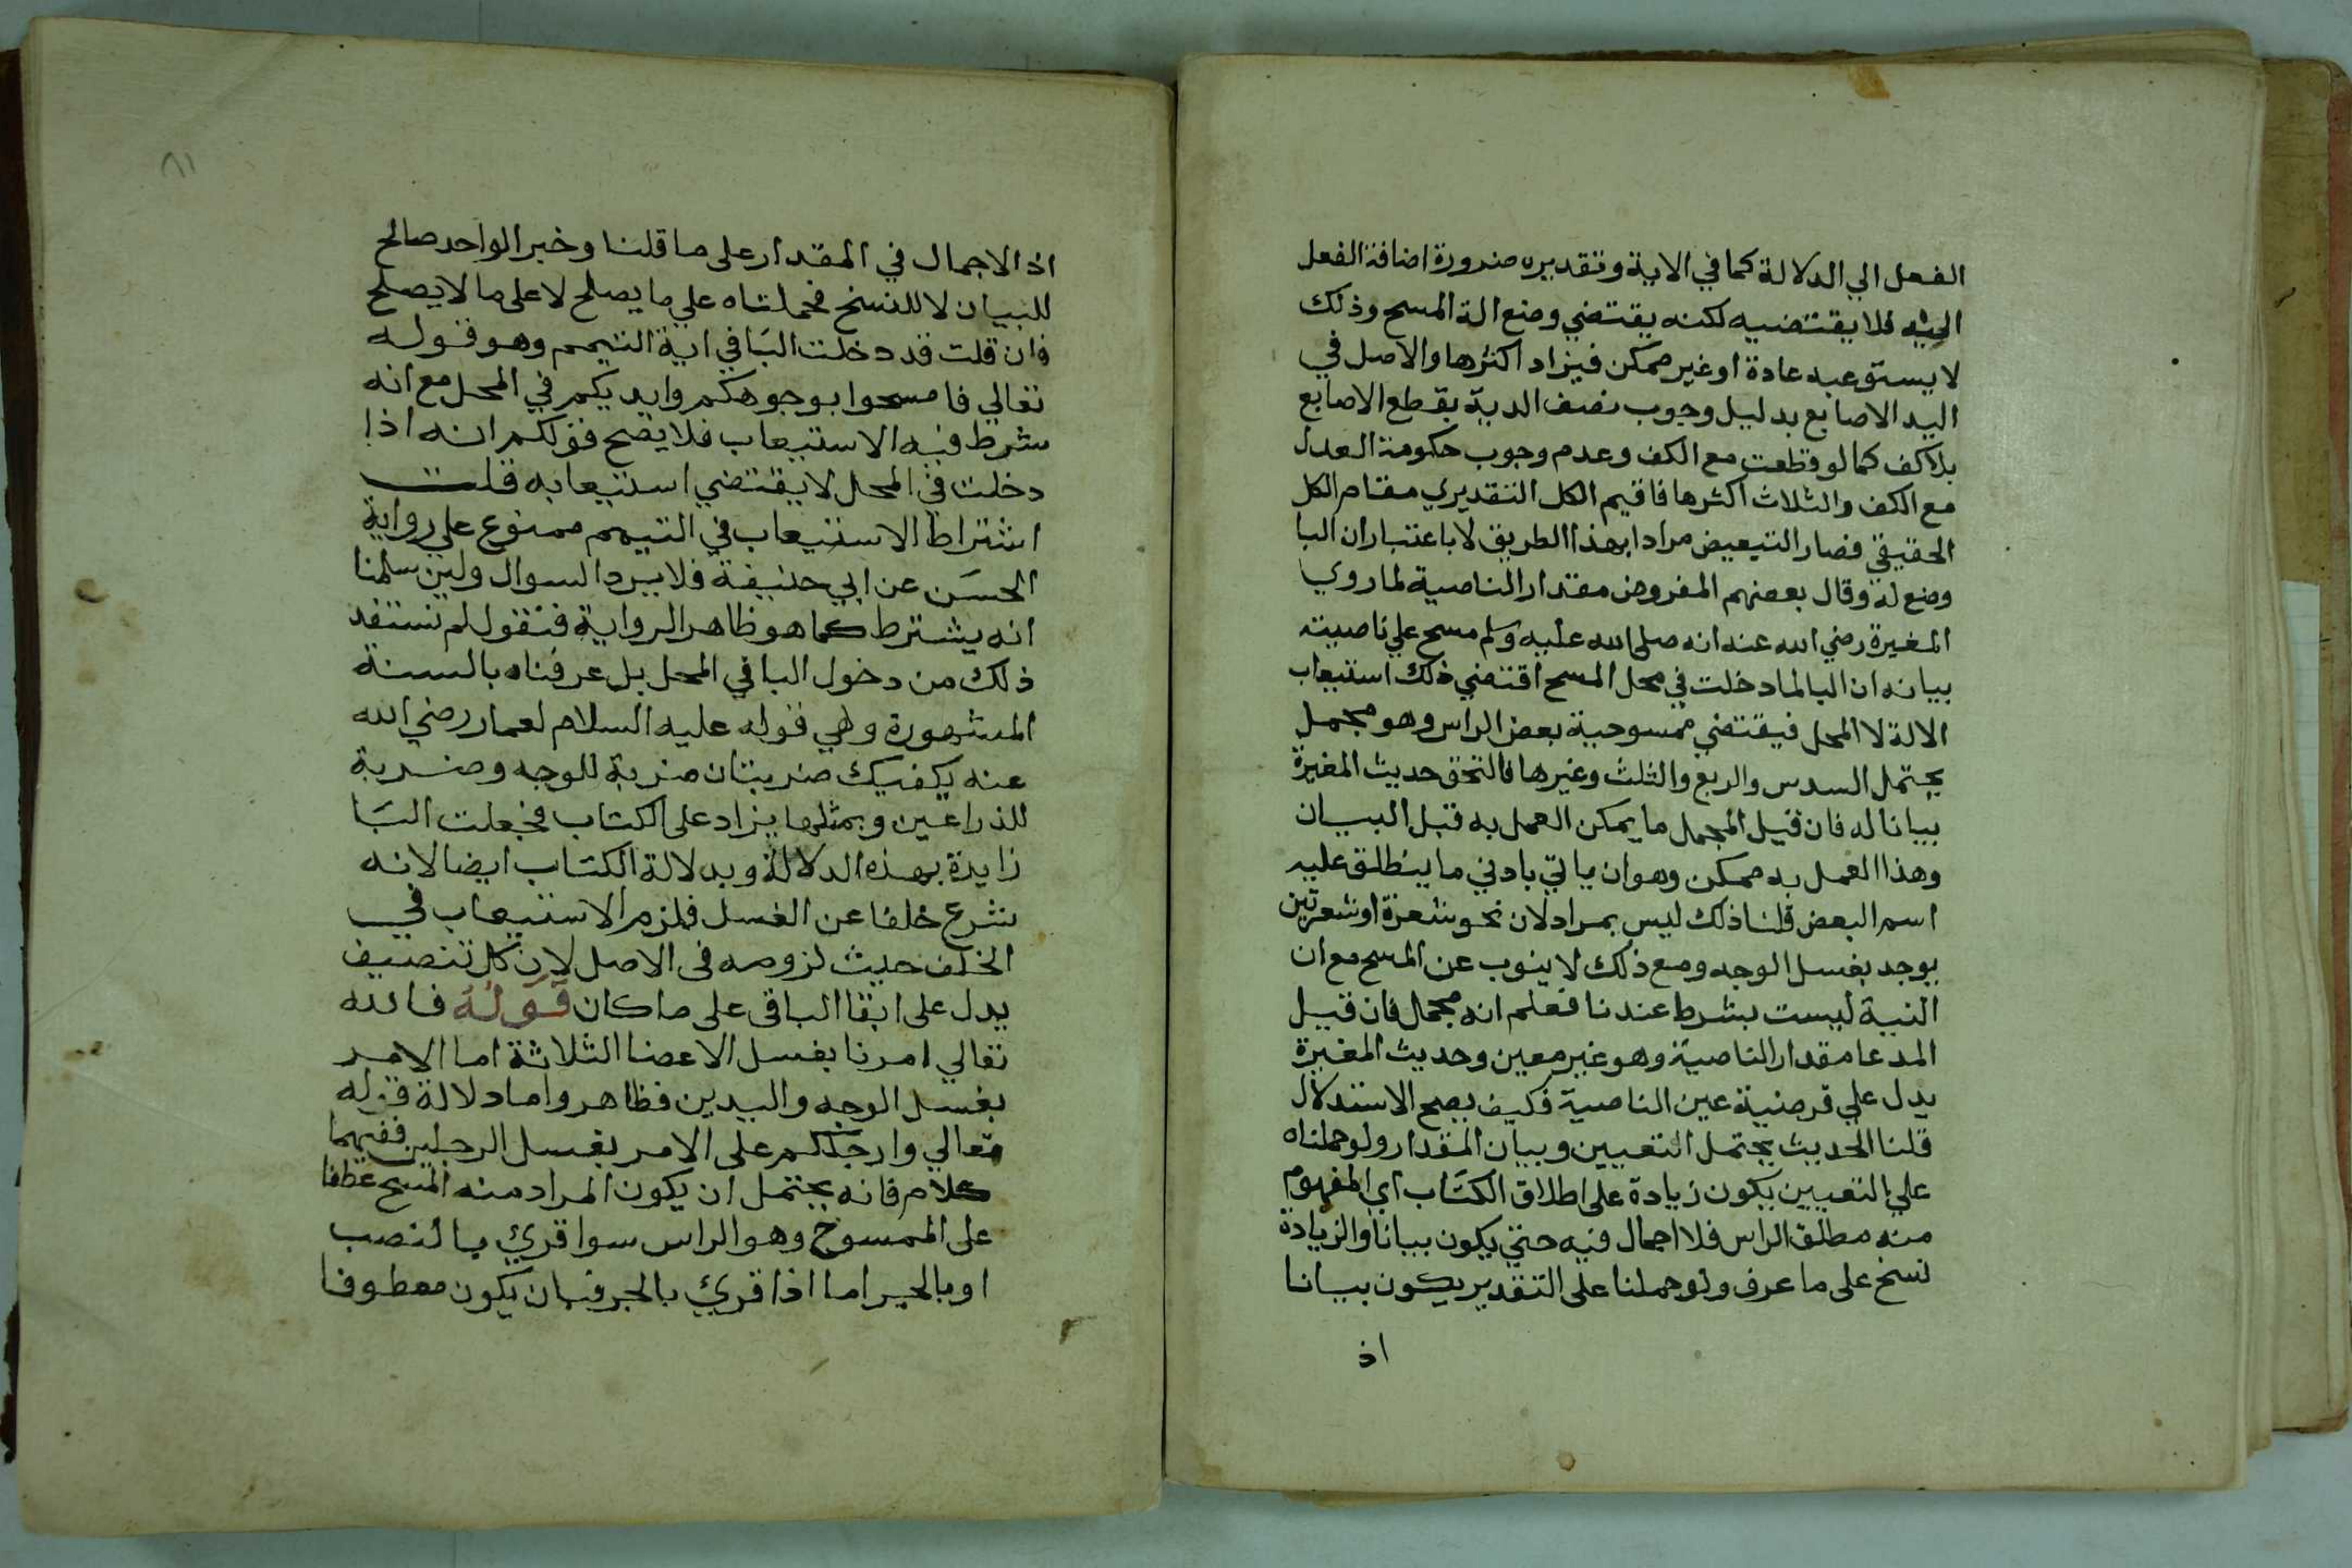 الفعل الي الدلالة كما في الاية وتقديره ضرورة اضافة الفعل
اليه فلا يقتضيه لكنه يقتضي وضع الة المسح وذلك
لا يستوعبه عادة او غير ممكن فيزاد اكثرها والاصل في
اليد الاصابع بدليل وجوب نصف الدية بقطع الاصابع
بلا كف كما لو قطعت مع الكف وعدم وجوب حكومة العدل
مع الكف والثلاث اكثرها فاقيم الكل التقديري مقام الكل
الحقيقي فصار التبعيض مرادا بهذا الطريق لا باعتبار ان البا
وضع له وقال بعضهم المفروض مقدار الناصية لما روي
المغيرة رضي الله عنه انه صلى الله عليه وسلم مسح علي ناصيته
بيانه ان البا لما دخلت في محل المسح اقتضي ذلك استيعاب
الالة لا المحل فيقتضي ممسوحية بعض الراس وهو مجمل
يحتمل السدس والربع والثلث وغيرها فالتحق حديث المغيرة
بيانا له فان قيل المجمل ما يمكن العمل به قبل البيان
وهذا العمل به ممكن وهو ان ياتي بادني ما ينطلق عليه
اسم البعض قلنا ذلك ليس بمراد لان نحو شعرة او شعرتين
يوجد بغسل الوجه ومع ذلك لا ينوب عن المسح مع ان
النية ليست بشرط عندنا فعلم انه مجمل فان قيل
المدعا مقدار الناصية وهو غير معين وحديث المغيرة
يدل علي فرضية عين الناصية فكيف يصح الاستدلال
قلنا الحديث يحتمل التعيين وبيان المقدار ولو حملناه
علي التعيين يكون زيادة على اطلاق الكتاب اي المفهوم
منه مطلق الراس فلا اجمال فيه حتي يكون بيانا والزيادة
نسخ على ما عرف ولو حملنا على التقدير يكون بيانا
اذ
٨١
اذ الاجمال في المقدار على ما قلنا وخبر الواحد صالح
للبيان لا للنسخ فحملناه علي ما يصلح لا على ما لا يصلح
فان قلت قد دخلت البا في اية التيمم وهو قوله
تعالي فامسحوا بوجوهكم وايديكم في المحل مع انه
شرط فيه الاستيعاب فلا يصح قولكم انه اذا
دخلت في المحل لا يقتضي استيعابه قلت
اشتراط الاستيعاب في التيمم ممنوع علي رواية
الحسن عن ابي حنيفة فلا يرد السوال ولين سلمنا
انه يشترط كما هو ظاهر الرواية فنقول لم نستفد
ذلك من دخول البا في المحل بل عرفناه بالسنة
المشهورة وهي قوله عليه السلام لعمار رضي الله
عنه يكفيك ضربتان ضربة للوجه وضربة
للذراعين وبمثلها يزاد على الكتاب فجعلت البا
زايدة بهذه الدلالة وبدلالة الكتاب ايضا لانه
شرع خلفا عن الغسل فلزم الاستيعاب في
الخلف حيث لزومه في الاصل لان كل تنصيف
يدل على ابقا الباقي على ما كان قوله فالله
تعالي امرنا بغسل الاعضا الثلاثة اما الامر
بغسل الوجه واليدين فظاهر واما دلالة قوله
تعالي وارجلكم على الامر بغسل الرجلين ففيهما
كلام فانه يحتمل ان يكون المراد منه المسح عطفا
على الممسوح وهو الراس سوا قري بالنصب
او بالجر اما اذا قري بالجر فبان يكون معطوفا